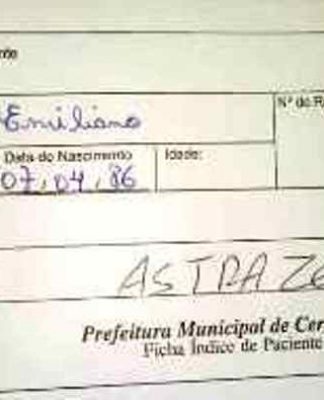 Emiliano
Nº do R
Data do Nascimento
Idade:
07,04,86
ASTRAZE
Prefeitura Municipal de Cer
Ficha Índice de Paciente